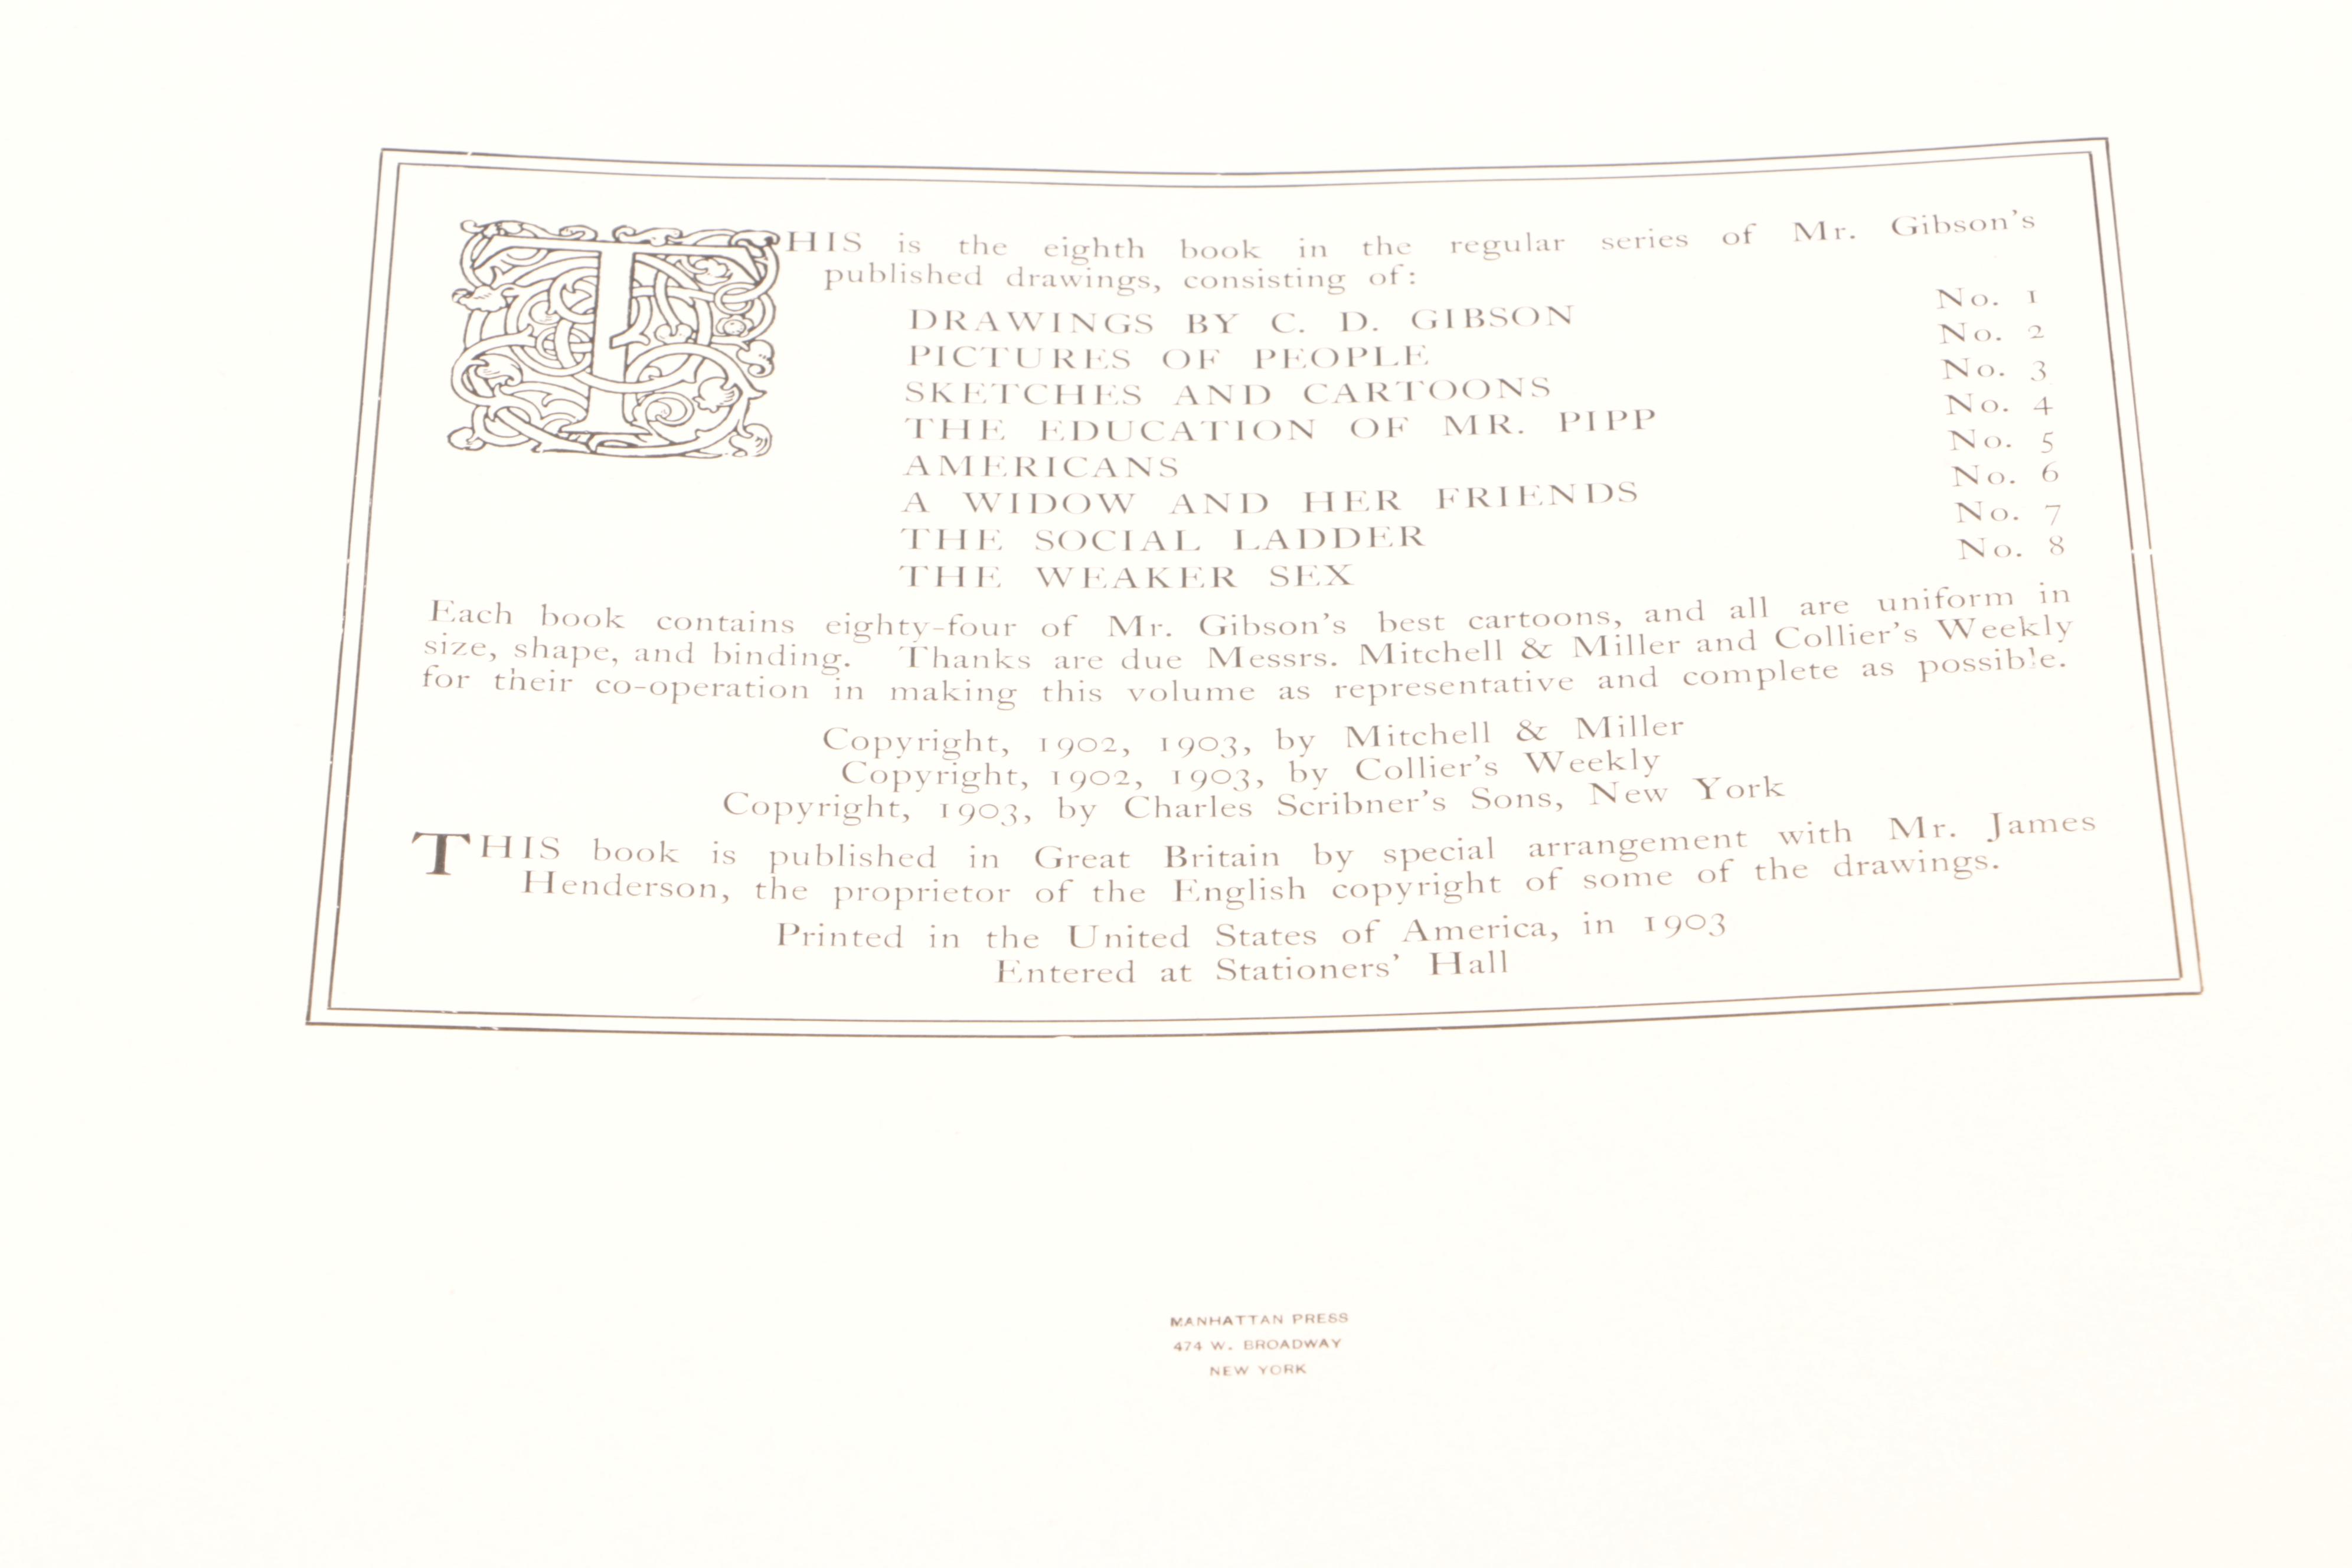 THIS is the eighth book in the regular series of Mr. Gibson's
published drawings, consisting of:
DRAWINGS BY C. D. GIBSON No. 1
PICTURES OF PEOPLE No. 2
SKETCHES AND CARTOONS No. 3
THE EDUCATION OF MR. PIPP No. 4
AMERICANS No. 5
A WIDOW AND HER FRIENDS No. 6
THE SOCIAL LADDER No. 7
THE WEAKER SEX No. 8
Each book contains eighty-four of Mr. Gibson's best cartoons, and all are uniform in
size, shape, and binding. Thanks are due Messrs. Mitchell & Miller and Collier's Weekly
for their co-operation in making this volume as representative and complete as possible.
Copyright, 1902, 1903, by Mitchell & Miller
Copyright, 1902, 1903, by Collier's Weekly
Copyright, 1903, by Charles Scribner's Sons, New York
THIS book is published in Great Britain by special arrangement with Mr. James
Henderson, the proprietor of the English copyright of some of the drawings.
Printed in the United States of America, in 1903
Entered at Stationers' Hall
MANHATTAN PRESS
474 W. BROADWAY
NEW YORK